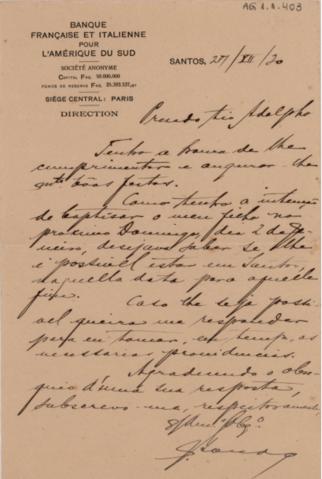 AG 1.1.403
BANQUE
FRANÇAISE ET ITALIENNE
POUR
L'AMÉRIQUE DU SUD
SOCIÉTÉ ANONYME
CAPITAL FRS. 50.000.000
FONDS DE RÉSERVE FRS.
SIÈGE CENTRAL: PARIS
DIRECTION
SANTOS, 27/XII/20
Presado tio Adolpho
Tenho a honra de lhe
cumprimentar e augurar-lhe
mtas bôas festas.
Como tenho a intenção
de baptisar o meu filho no
proximo Domingo, dia 2 de Ja-
neiro, desejava saber se lhe
é possivel estar em Santos,
naquella data para aquelle
fim.
Caso lhe seja possi-
vel queira me responder
para eu tomar, em tempo, as
necessarias providencias.
Agradecendo o obse-
quio d'uma sua resposta,
subscrevo-me, respeitosamente